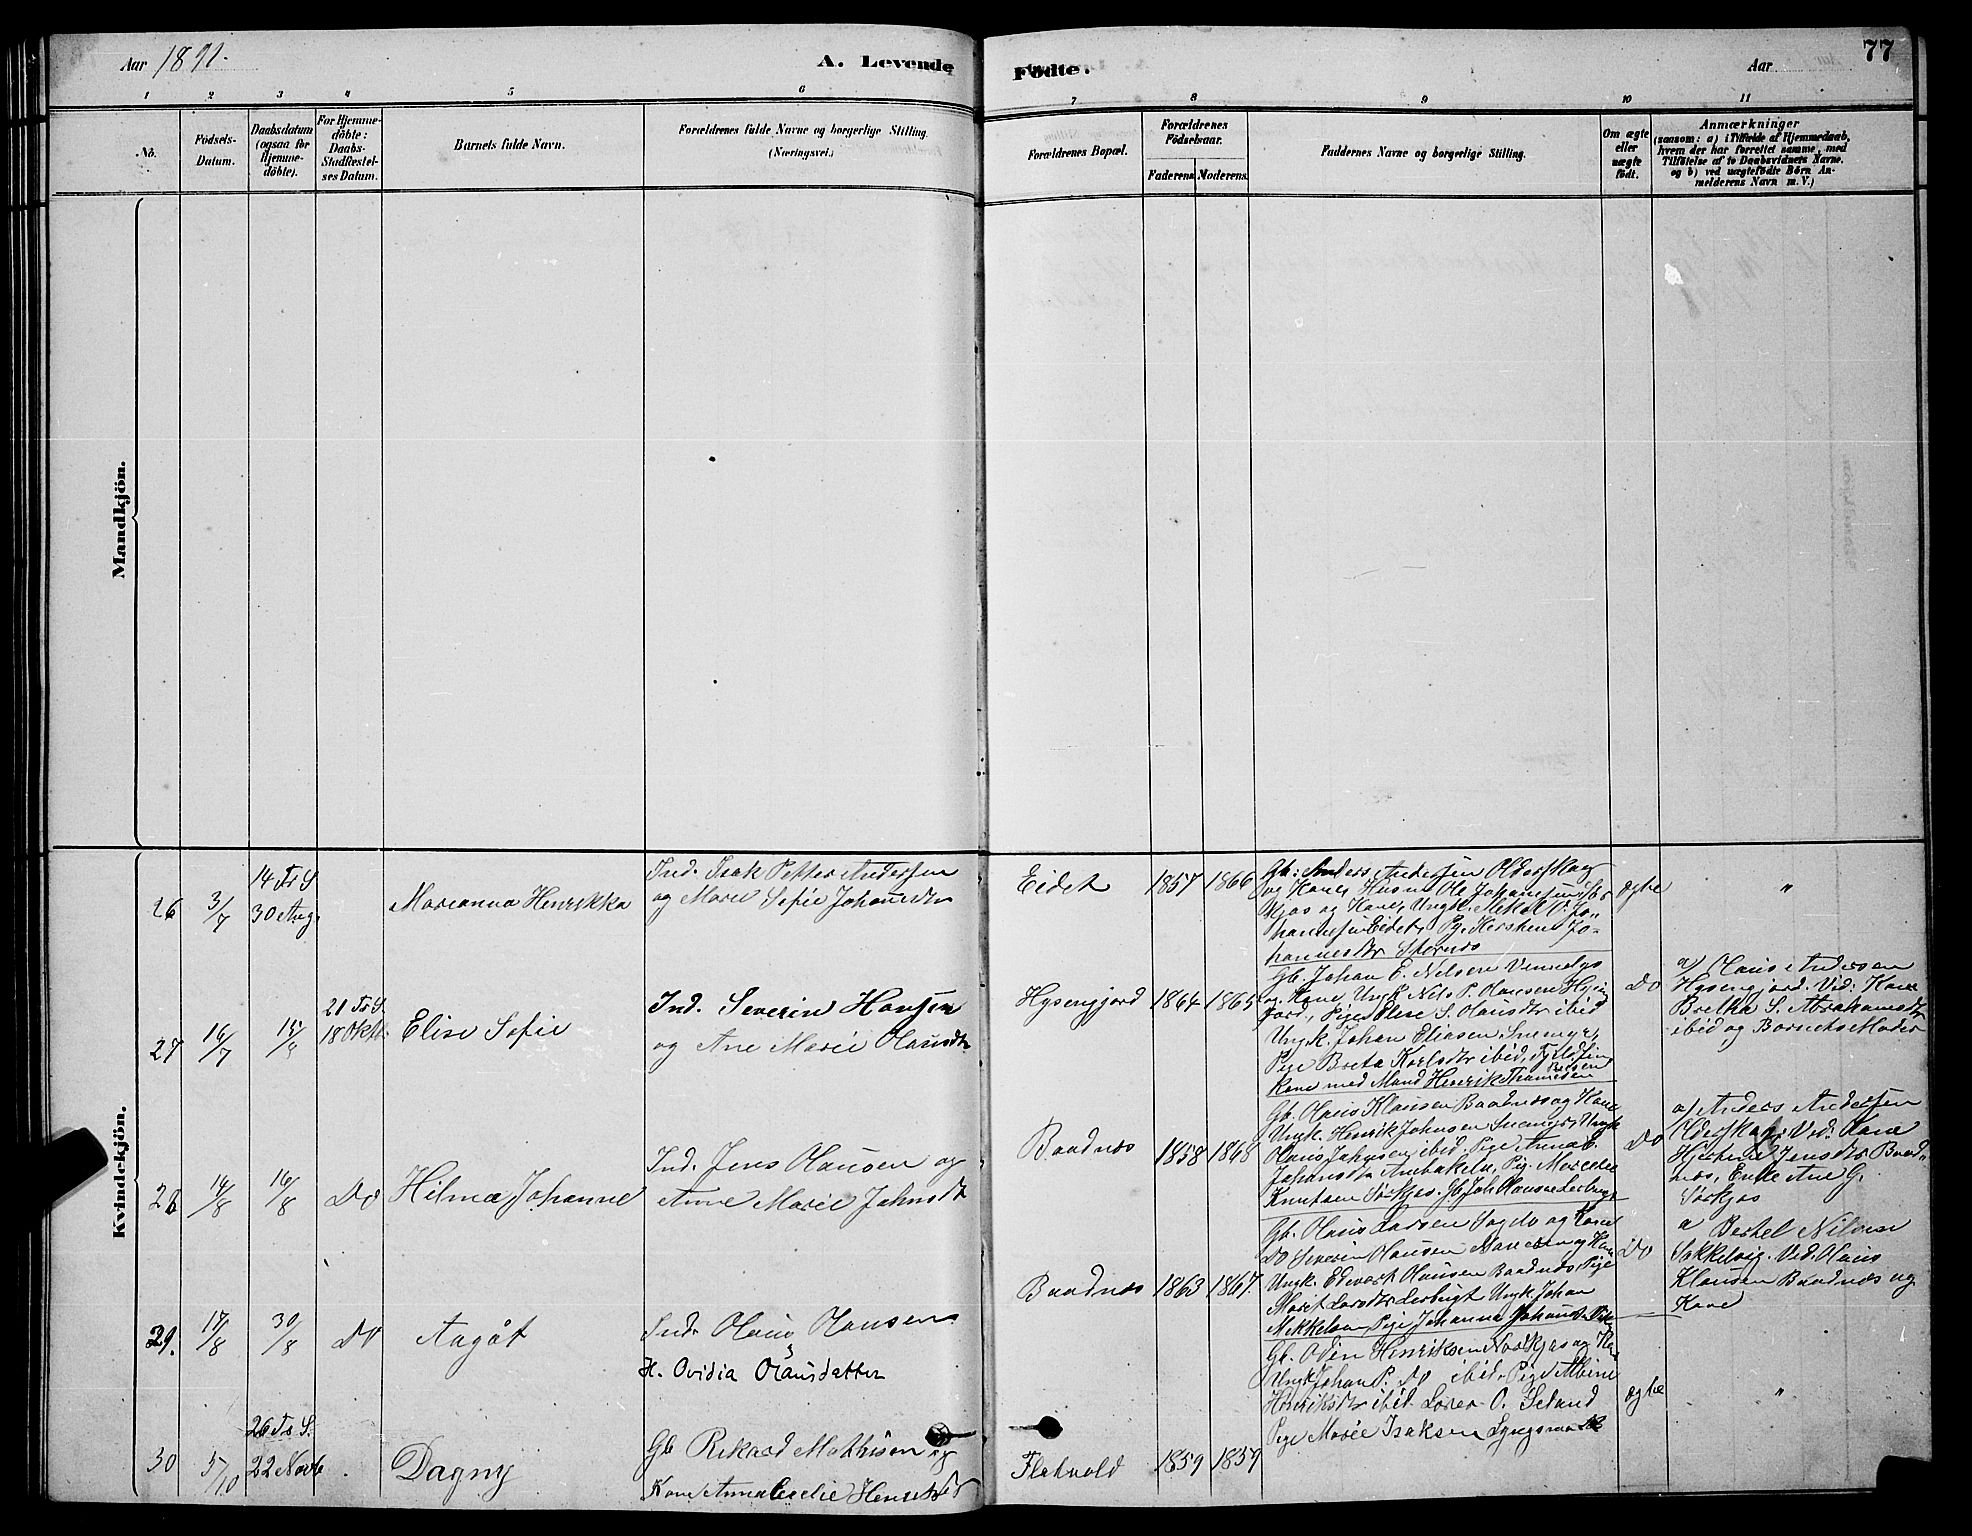 Aar 1891.
A. Levende
Födte.
Aar
77
1 2 3 4 5 6 7 8 9 10 11
No.
Födsels-
Datum.
Daabsdatum
(ogsaa for
Hjemme-
döbte).
For Hjemme-
döbte:
Daabs-
Stadfæstel-
ses Datum.
Barnets fulde Navn.
Forældrenes fulde Navne og borgerlige Stilling.
(Næringsvei.)
Forældrenes Bopæl.
Forældrenes
Födselsaar.
Faderens Moderens
Faddernes Navne og borgerlige Stilling.
Om ægte
eller
uægte
födt.
Anmærkninger
(saasom: a) i Tilfælde af Hjemmedaab,
hvem der har forrettet samme, med
Tilföielse af to Daabsvidnets Navne.
og b) ved uægtefödte Börn An-
melderens Navn m. V.)
Mandkjön.
Kvindekjön.
26
3/7
14 Tr S
30 Aug
Marianna Henrikka
Ind. Isak Petter Andersen
og Marie Sofie Johansdtr
Eidet
1857 1866
Gb. Anders Andersen Olderskog
og Kone, Husm Ole Johannesen Stor
og Kone, Ungk. Mekal O. Jo-
hannesen Eidet, Pg. Kirsten Jo-
hannesdtr Stornes
ægte
"
27
16/7
15/9
21 Tr S.
18 Oktb.
Elise Sofie
Ind. Severin Hansen
og Ane Marie Hansdtr
Hysengjord
1864 1865
Gb. Johan E. Nilsen Vennelys
og Kone, Ungk Nils P. Hansen Hysing
jord, Pige Elise S. Hansdtr ibid
Ungk. Johan Eliasen Snemyr,
Pige Breta Karlsdtr ibid,
Kone med Mand Henrik Thomesen
Do
a/ Hans Andersen
Hysengjord. Vid: Kone
Bretha S. Abrahamsdtr
ibid og Barnets Moder
28
14/8
16/8
Do
Hilma Johanne
Ind. Jens Hansen og
Anne Marie Johnsdtr
Baadnes
1858 1868
Gb. Hans Klausen Baadnes og Kone
Ungk. Henrik Johnsen Snemyr, Ungk
Hans Johnsen ibid, Pige Anna E.
Johansdtr Anebakeln, Pig. Merethe
Knutsen Sörkjos. Gb. Joh Hansen Lerbugt
Do
a/ Anders Andersen
Olderskog, Vid: Kone
Kjerstine Jensdtr Baad-
nes, Enke Ane G.
Sörkjos
29.
17/8
30/8
Do
Aagot
Ind. Hans Hansen
H. Ovidia Olausdatter
Baadnes
1863 1867.
Gb. Hans Larsen Sagelv og Kone
Do Severin Hansen og Kone
Ungk. Edvart Hansen Baadnes, Pige
Marit Larsdtr Lerbugt Ungk. Johan
Mikkelsen, Pige Johanna Johansdtr
Do
a Berthel Nilsen
Sakkelvig. Vid. Hans
Klausen Baadnes og
Kone
30
5/10
26 Tr S.
22 Novb
Dagny
Gb Rikard Mathisen og
Kone Anna Cecelie Henriksdtr
Flatvold
1859 1857
Gb. Odin Henriksen Nordkjos og Kone
Ungk Johan P. Do ibid. Pige Albine
Henriksdtr ibid. Lærer O. Iseland
Pige Marie Isaksen Lyngsmark
ægte
"